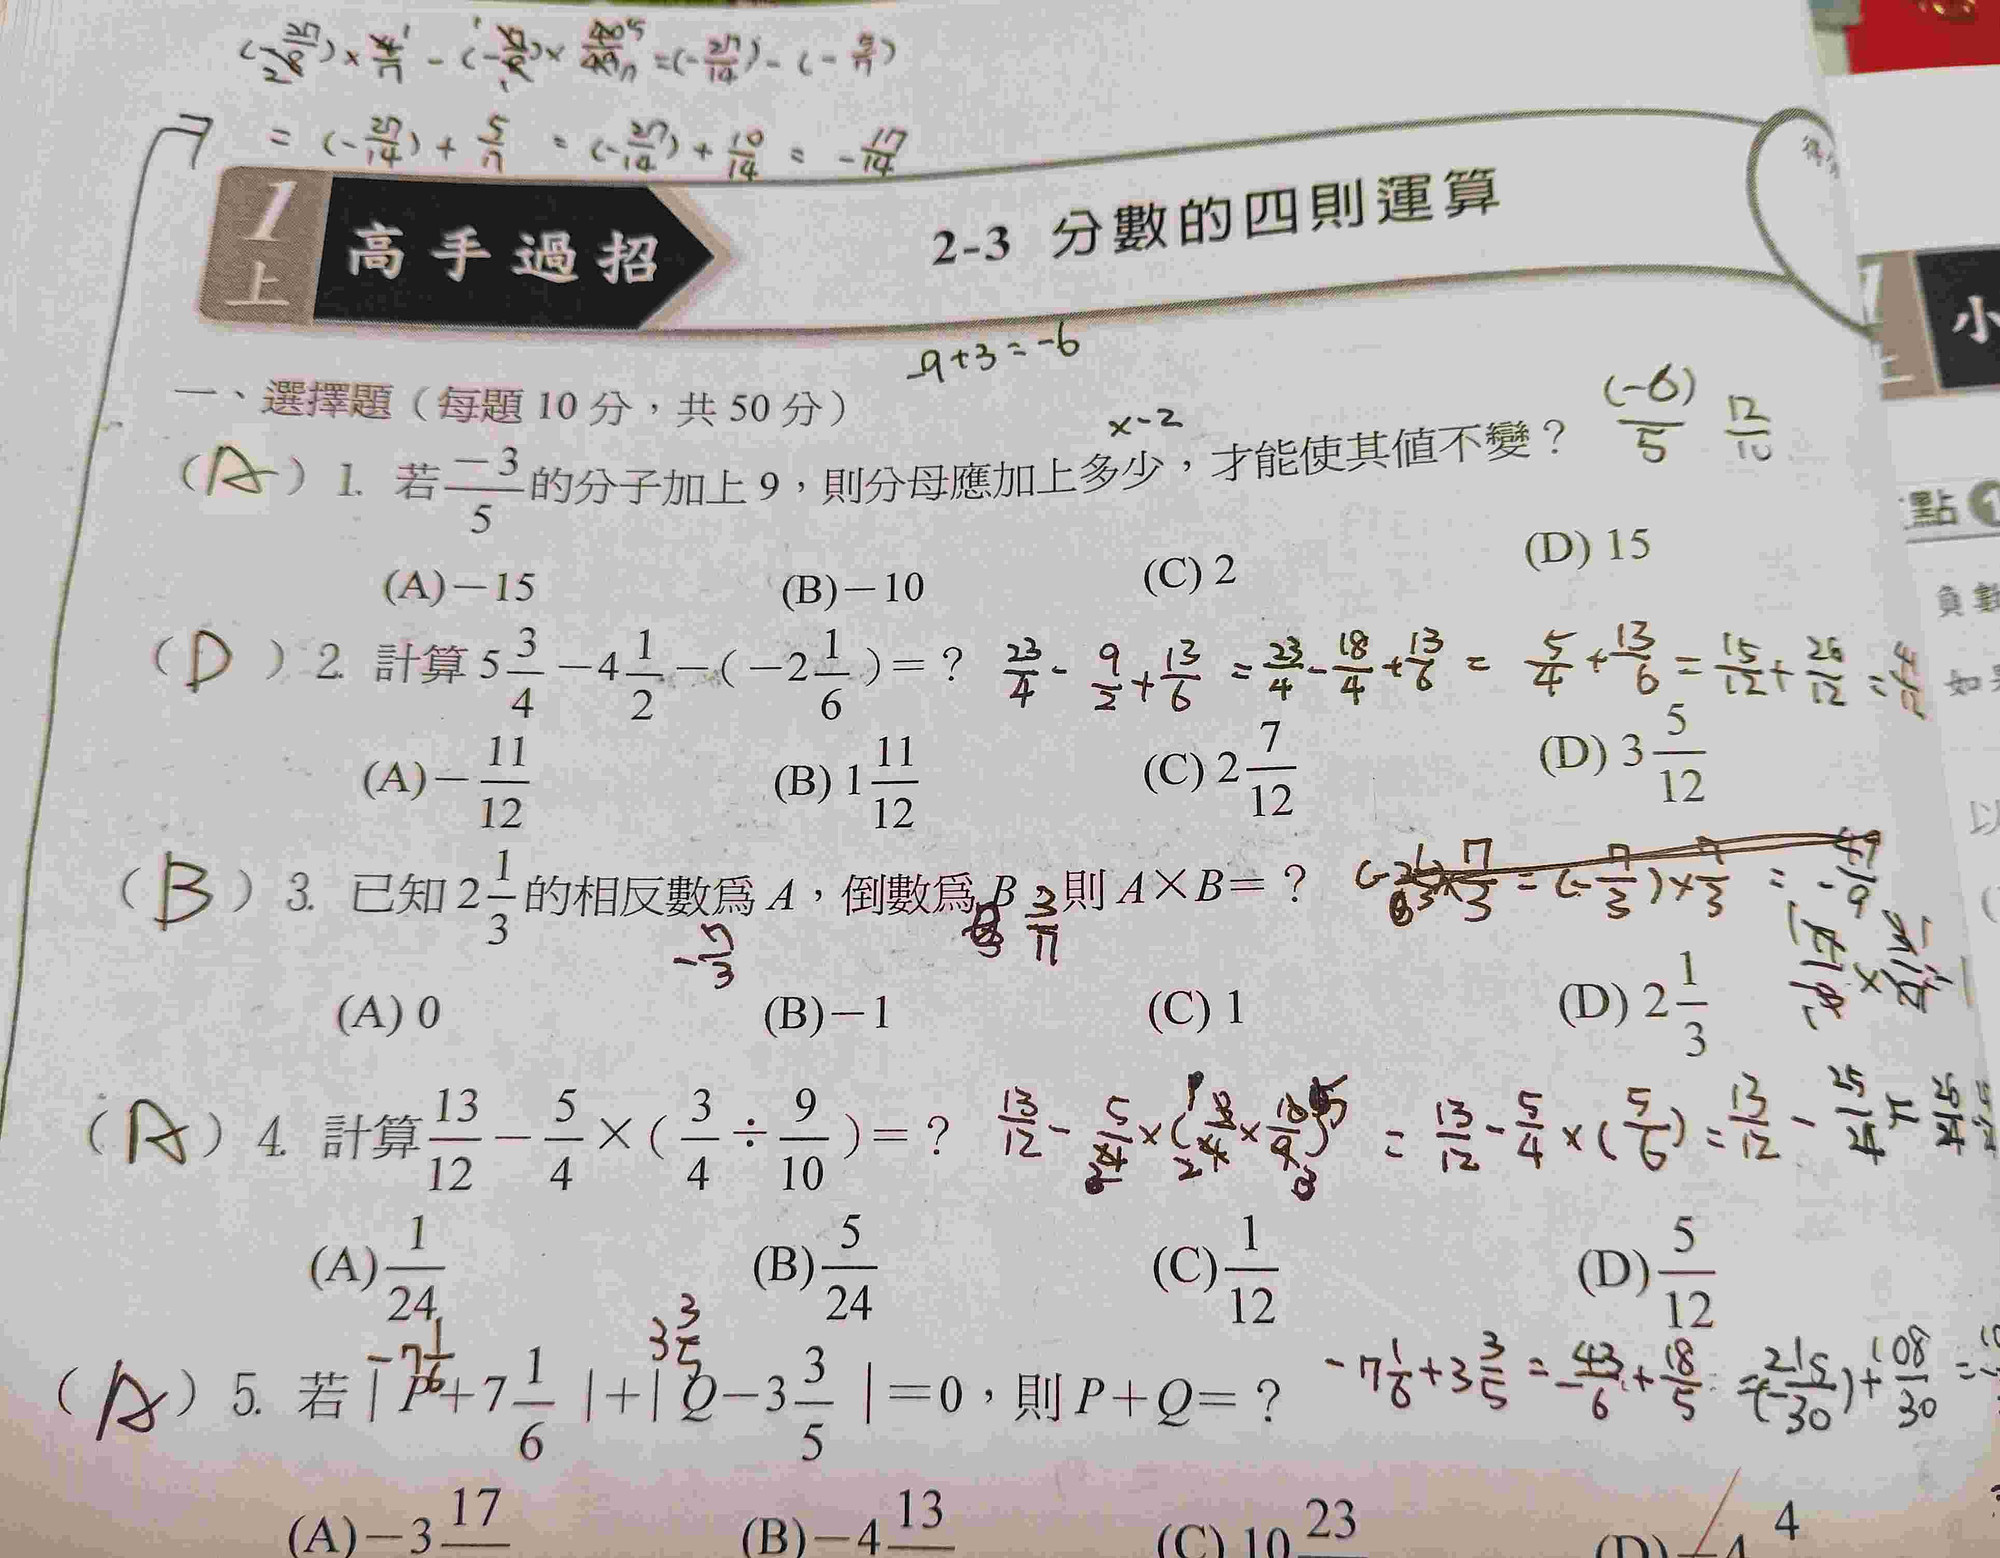 = (-27/14) + 5/7 = (-27/14) + 10/14 = -17/14
1上 高手過招
2-3 分數的四則運算
-9+3=-6
一、選擇題（每題 10 分，共 50 分）
×-2
（A）1. 若 -3/5 的分子加上 9，則分母應加上多少，才能使其值不變？ (-6)/5 12/10
(A) －15 (B) －10 (C) 2 (D) 15
（D）2. 計算 5 3/4 － 4 1/2 －（－2 1/6）＝？ 23/4 - 9/2 + 13/6 = 23/4 - 18/4 + 13/6 = 5/4 + 13/6 = 15/12 + 26/12 =
(A) － 11/12 (B) 1 11/12 (C) 2 7/12 (D) 3 5/12
（B）3. 已知 2 1/3 的相反數爲 A，倒數爲 B，則 A×B＝？
-7/3 3/7
(A) 0 (B) －1 (C) 1 (D) 2 1/3
（A）4. 計算 13/12 － 5/4 ×（3/4 ÷ 9/10）＝？ = 13/12 - 5/4 × (5/6) = 13/12 -
(A) 1/24 (B) 5/24 (C) 1/12 (D) 5/12
-7 1/6 3 3/5
（A）5. 若｜P＋7 1/6｜＋｜Q－3 3/5｜＝0，則 P＋Q＝？ -7 1/6 + 3 3/5 = -43/6 + 18/5 = (-215/30) + 108/30 =
(A) －3 17 (B) －4 13 (C) 10 23 (D) 4
小
點 1
負數
以